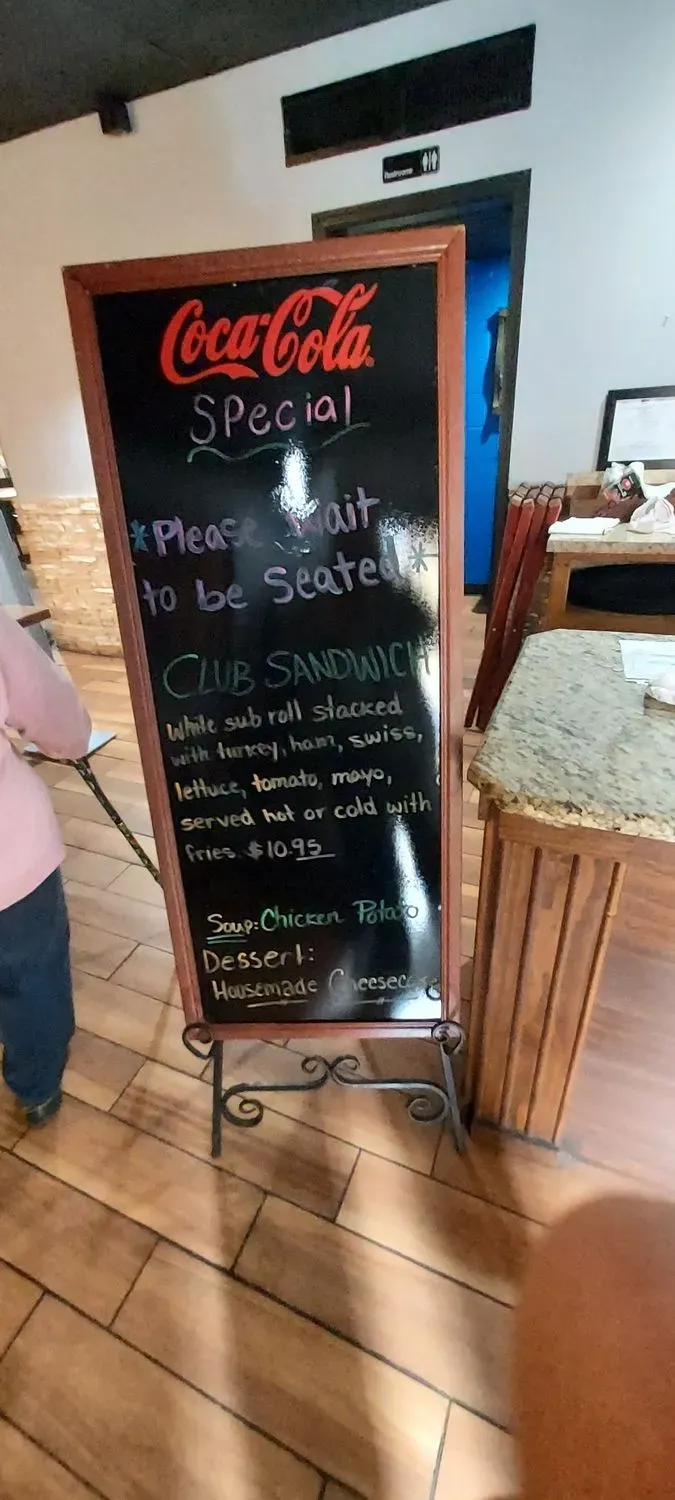 Restrooms
Coca-Cola
Special
*Please wait
to be Seated*
CLUB SANDWICH
White sub roll stacked
with turkey, ham, swiss,
lettuce, tomato, mayo,
served hot or cold with
fries. $10.95
Soup: Chicken Potato
Dessert:
Housemade Cheesecake